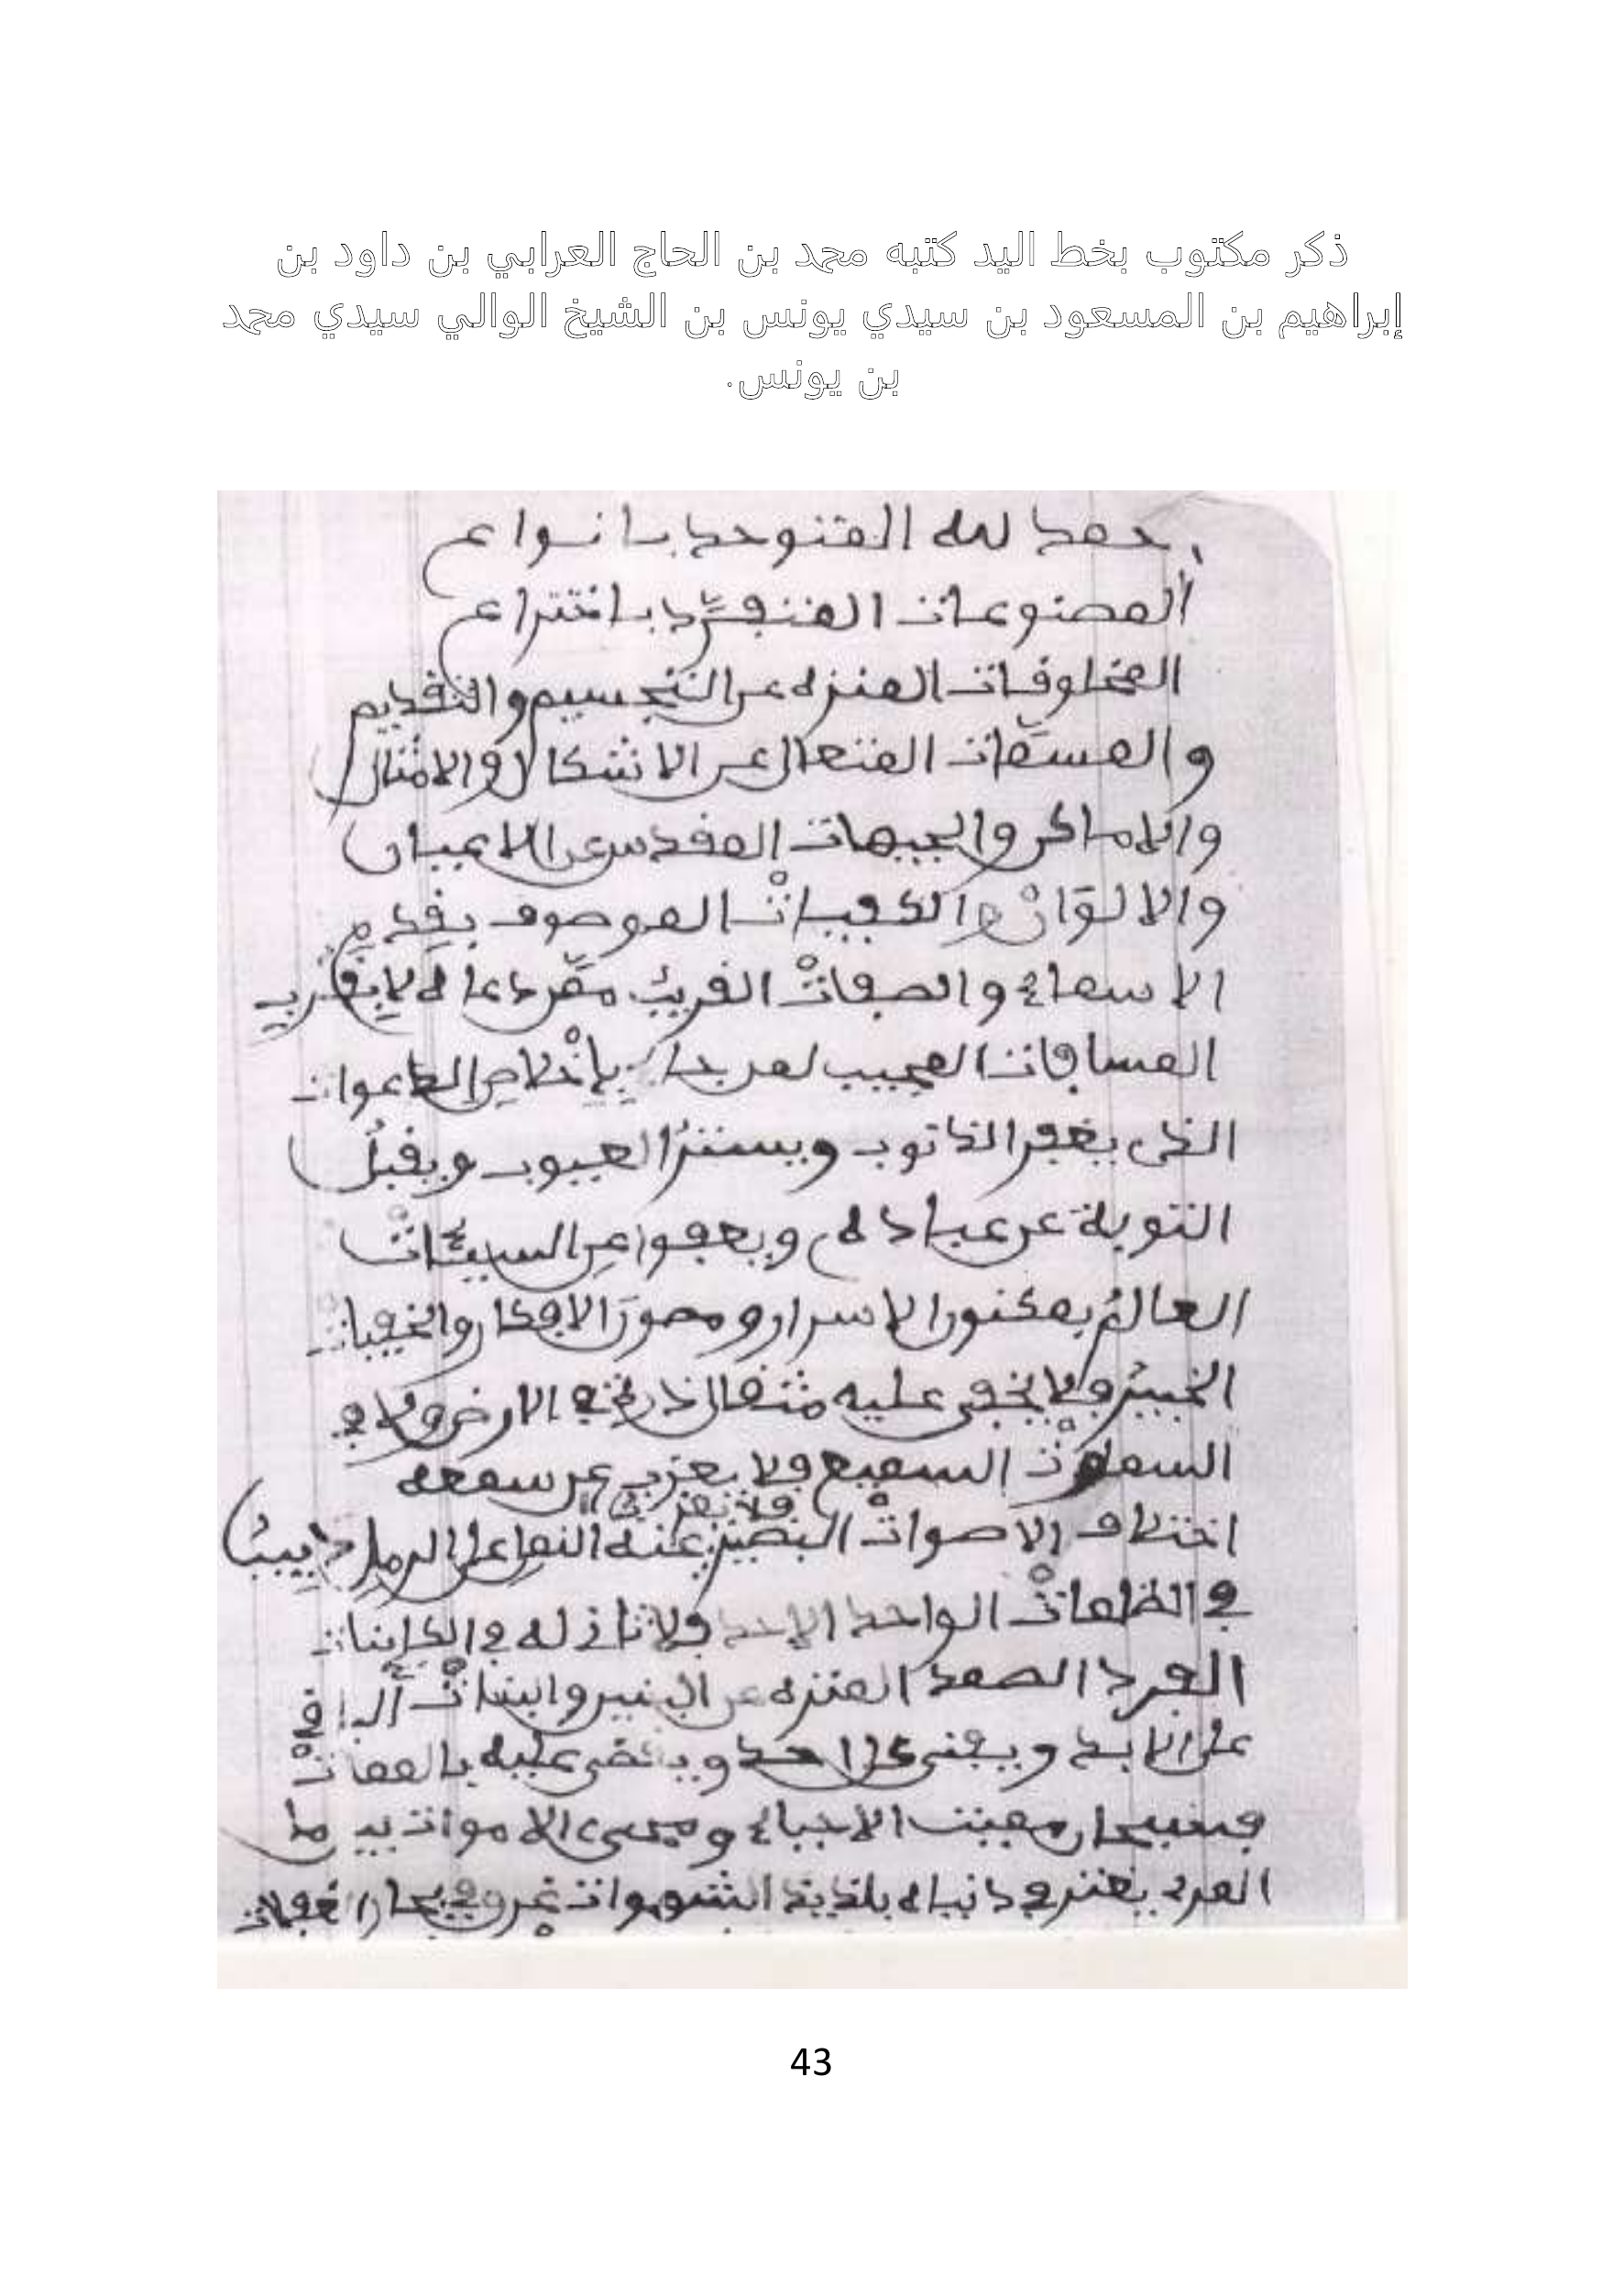 ذكر مكتوب بخط اليد كتبه محمد بن الحاج العرابي بن داود بن
إبراهيم بن المسعود بن سيدي يونس بن الشيخ الوالي سيدي محمد
بن يونس.
حمد لله المتوحد بانواع
المصنوعات المتفرد باختراع
المخلوقات المنزه عن التجسيم والتقديم
والمسمّات المتعال عن الاشكال والامثال
والاماكن والجيهات المقدس عن الاعيان
والالوان والكيفيات الموصوف بقدم
الاسماء والصفات القريب دعاه لا بقرب
المسافات المجيب لمن باخلاص الدعوات
الذى يغفر الذنوب ويستر العيوب ويقبل
التوبة عن عباده ويعفوا عن السيئات
العالم بمكنون الاسرار ومصور الافكار والخفيات
الخبير ولا يخفى عليه مثقال ذرة في الارض ولا في
السموت السميع ولا يعزب عن سمعه
اختلاف الاصوات البصير عنه النمل على الرمل دبيب
في الظلمات الواحد الاحد ولا ثان له في الكاينات
الفرد الصمد المنزه عن البنين والبنات الباقي
على الابد ويفنى كل احد ويقضى عليه بالممات
فسبحان مميت الاحياء ومحيى الاموات بينما
المرء يغتر في دنياه بلذيذ الشهوات غرو في بحار الغفلات
43